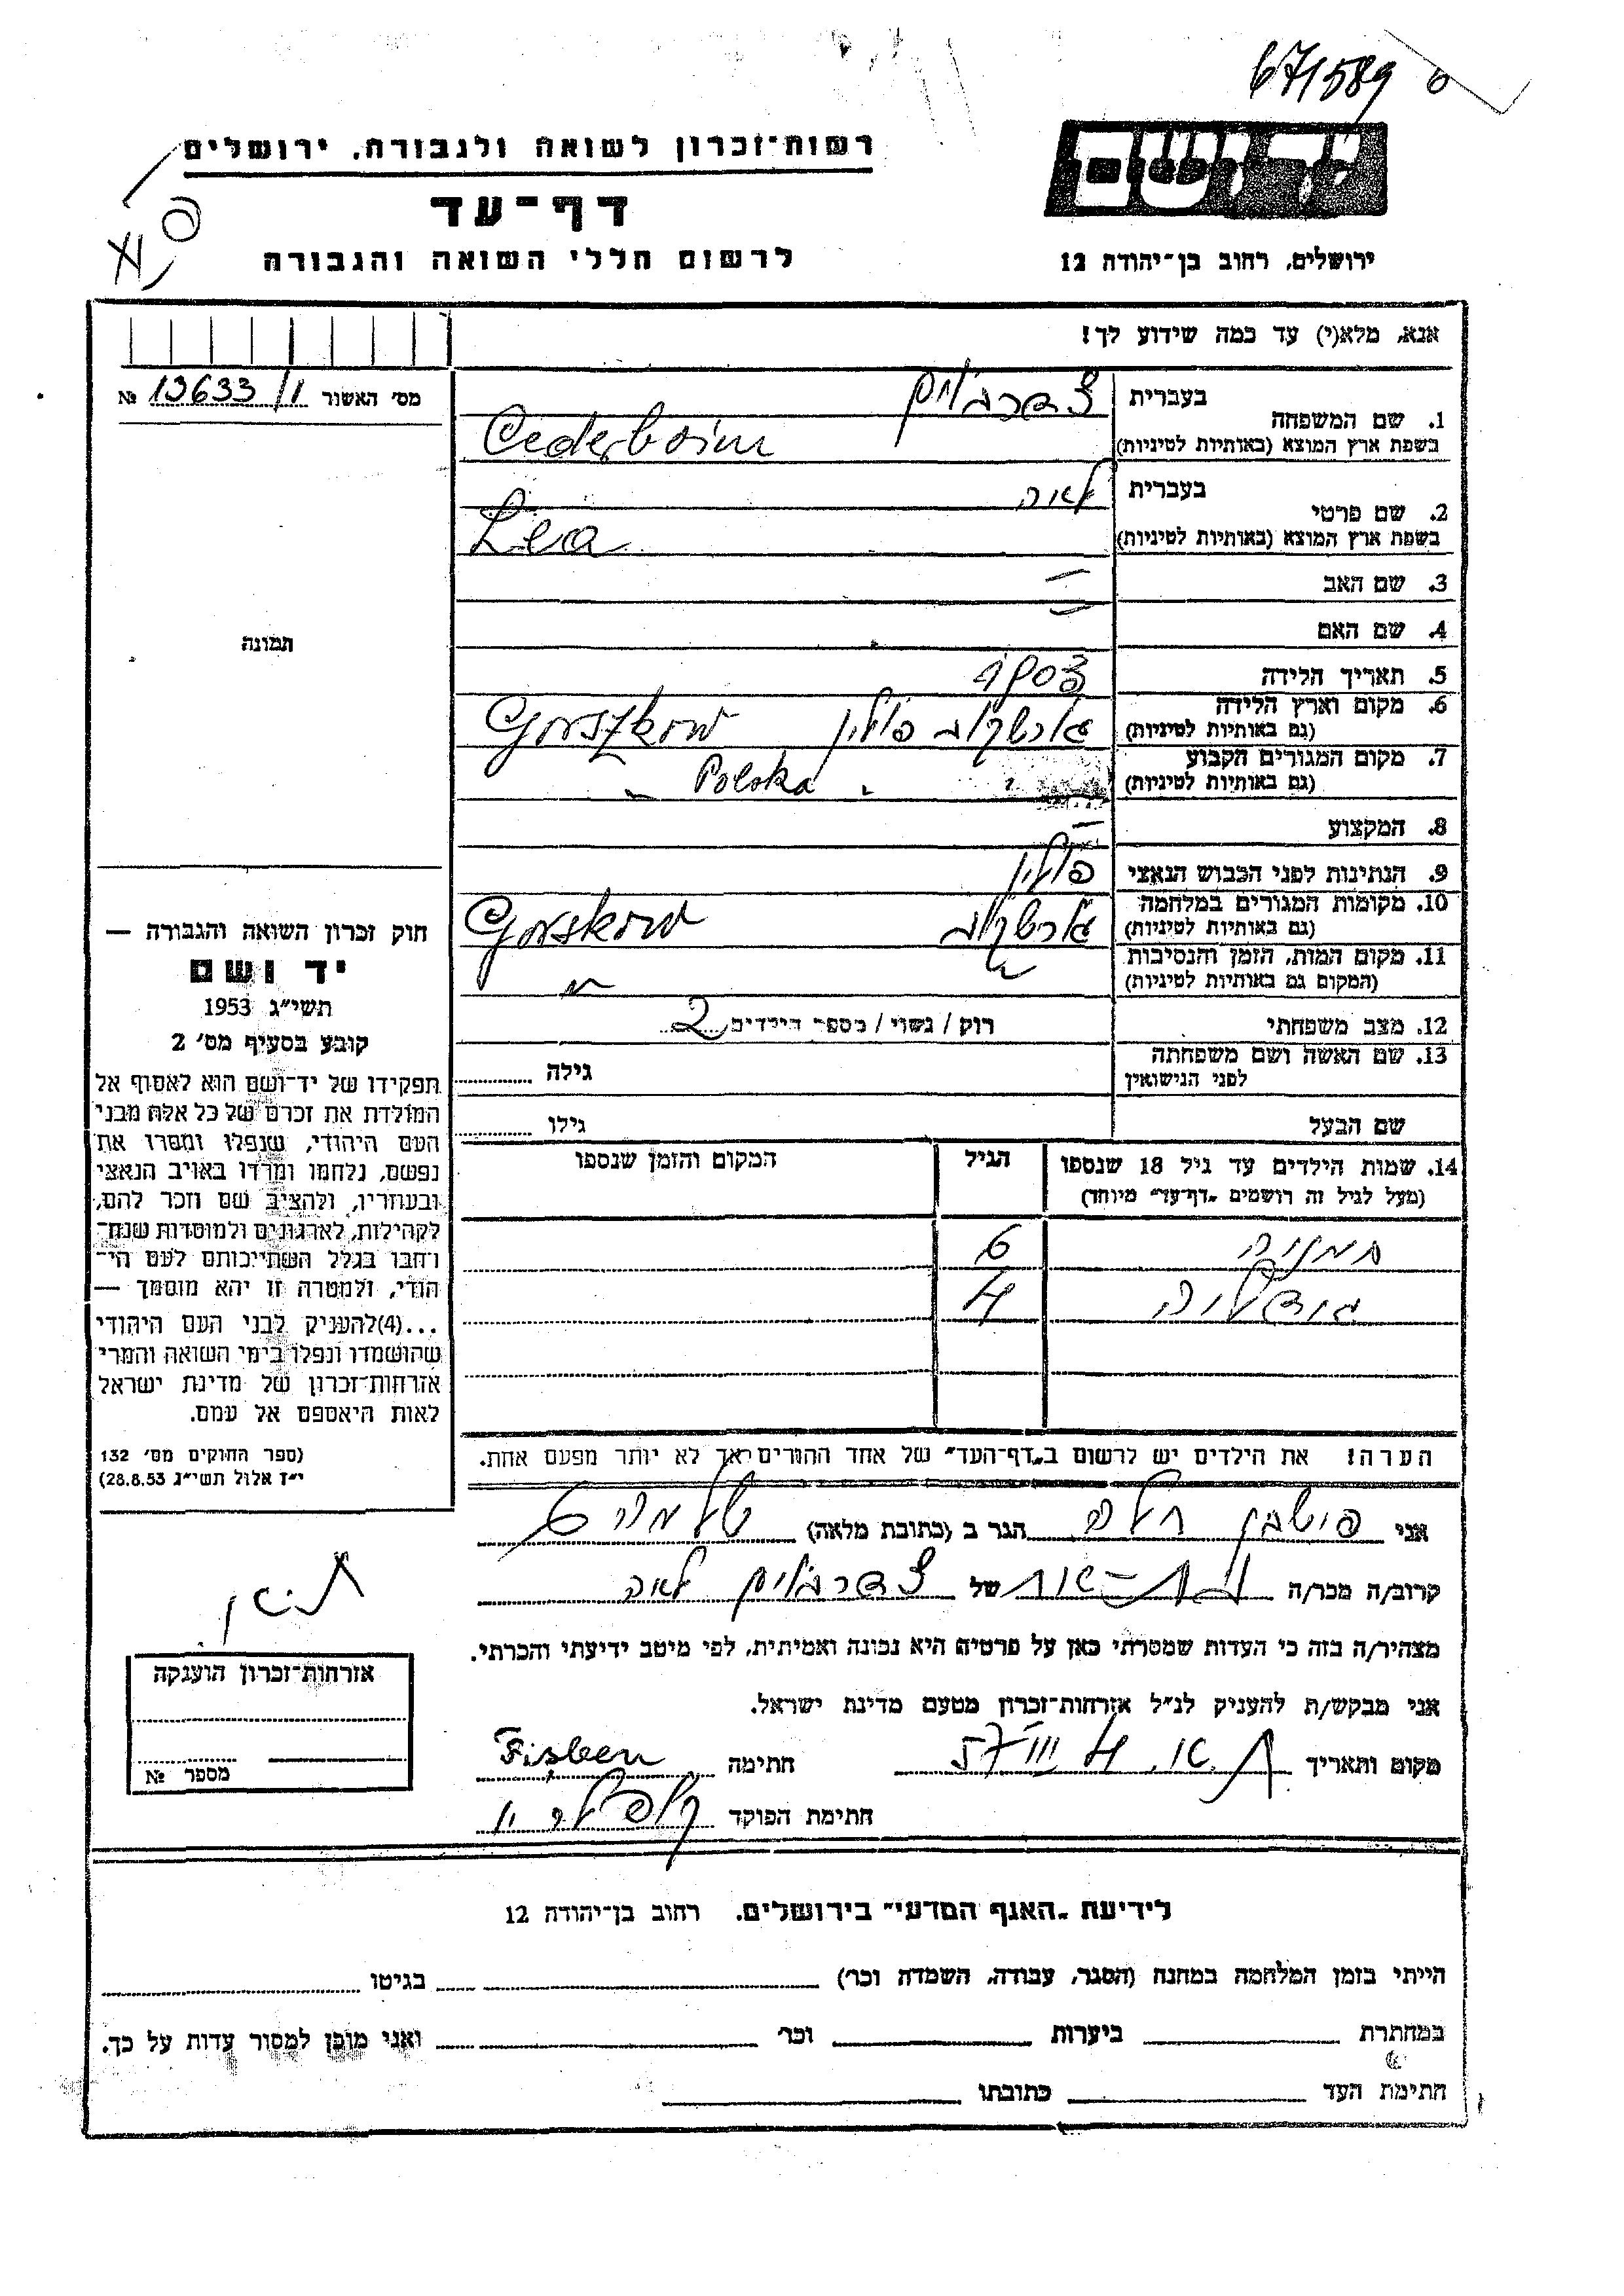 671589
רשות־זכרון לשואה ולגבורה, ירושלים
יד ושם
דף־עד
לרשום חללי השואה והגבורה
ירושלים, רחוב בן־יהודה 12
אנא, מלא(י) עד כמה שידוע לך!
מס׳ האשור 13633/1 №
תמונה
1. שם המשפחה
בעברית צדרבוים
בשפת ארץ המוצא (באותיות לטיניות) Cederboim
2. שם פרטי
בעברית לאה
בשפת ארץ המוצא (באותיות לטיניות) Lea
3. שם האב —
4. שם האם —
5. תאריך הלידה 1903
6. מקום וארץ הלידה
(גם באותיות לטיניות) גורשקוב פולין Gorszkow
7. מקום המגורים הקבוע
(גם באותיות לטיניות) Polska
8. המקצוע —
9. הנתינות לפני הכבוש הנאצי פולין
10. מקומות המגורים במלחמה
(גם באותיות לטיניות) Gorskow
11. מקום המות, הזמן והנסיבות
(המקום גם באותיות לטיניות)
12. מצב משפחתי רוק / נשוי / מספר הילדים 2
13. שם האשה ושם משפחתה
לפני הנישואין
גילה
שם הבעל גילו
14. שמות הילדים עד גיל 18 שנספו הגיל המקום והזמן שנספו
(מעל לגיל זה רושמים „דף־עד״ מיוחד)
6
4
הערה! את הילדים יש לרשום ב„דף־העד״ של אחד ההורים אך לא יותר מפעם אחת.
חוק זכרון השואה והגבורה —
יד ושם
תשי״ג 1953
קובע בסעיף מס׳ 2
תפקידו של יד־ושם הוא לאסוף אל
המולדת את זכרם של כל אלה מבני
העם היהודי, שנפלו ומסרו את
נפשם, נלחמו ומרדו באויב הנאצי
ובעוזריו, ולהציב שם וזכר להם,
לקהילות, לארגונים ולמוסדות שנח־
רחבו בגלל השתייכותם לעם הי־
הודי, ולמטרה זו יהא מוסמך —
...(4)להעניק לבני העם היהודי
שהושמדו ונפלו בימי השואה והמרי
אזרחות־זכרון של מדינת ישראל
לאות היאספם אל עמם.
(ספר החוקים מס׳ 132
י״ז אלול תשי״ג 28.8.53)
אני פישבן חיה הגר ב (כתובת מלאה)
קרוב/ה מכר/ה של צדרבוים לאה
מצהיר/ה בזה כי העדות שמסרתי כאן על פרטיה היא נכונה ואמיתית, לפי מיטב ידיעתי והכרתי.
אני מבקש/ת להעניק לנ״ל אזרחות־זכרון מטעם מדינת ישראל.
מקום ותאריך ת״א. 4 III 57 חתימה Fisben
חתימת הפוקד
אזרחות־זכרון הוענקה
מספר №
לידיעת „האגף המדעי״ בירושלים, רחוב בן־יהודה 12
הייתי בזמן המלחמה במחנה (הסגר, עבודה, השמדה וכר׳) בגיטו
במחתרת ביערות וכר׳ ואני מוכן למסור עדות על כך.
חתימת העד כתובתו